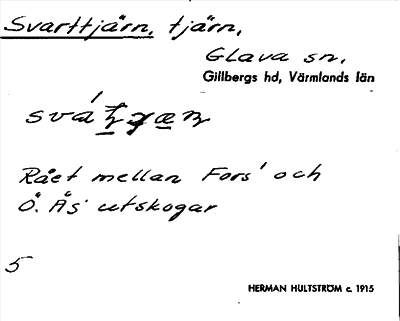 Svarttjärn, tjärn,
Glava sn.
Gillbergs hd, Värmlands län
Rået mellan Fors' och
Ö. Ås' utskogar
5
HERMAN HULTSTRÖM c. 1915